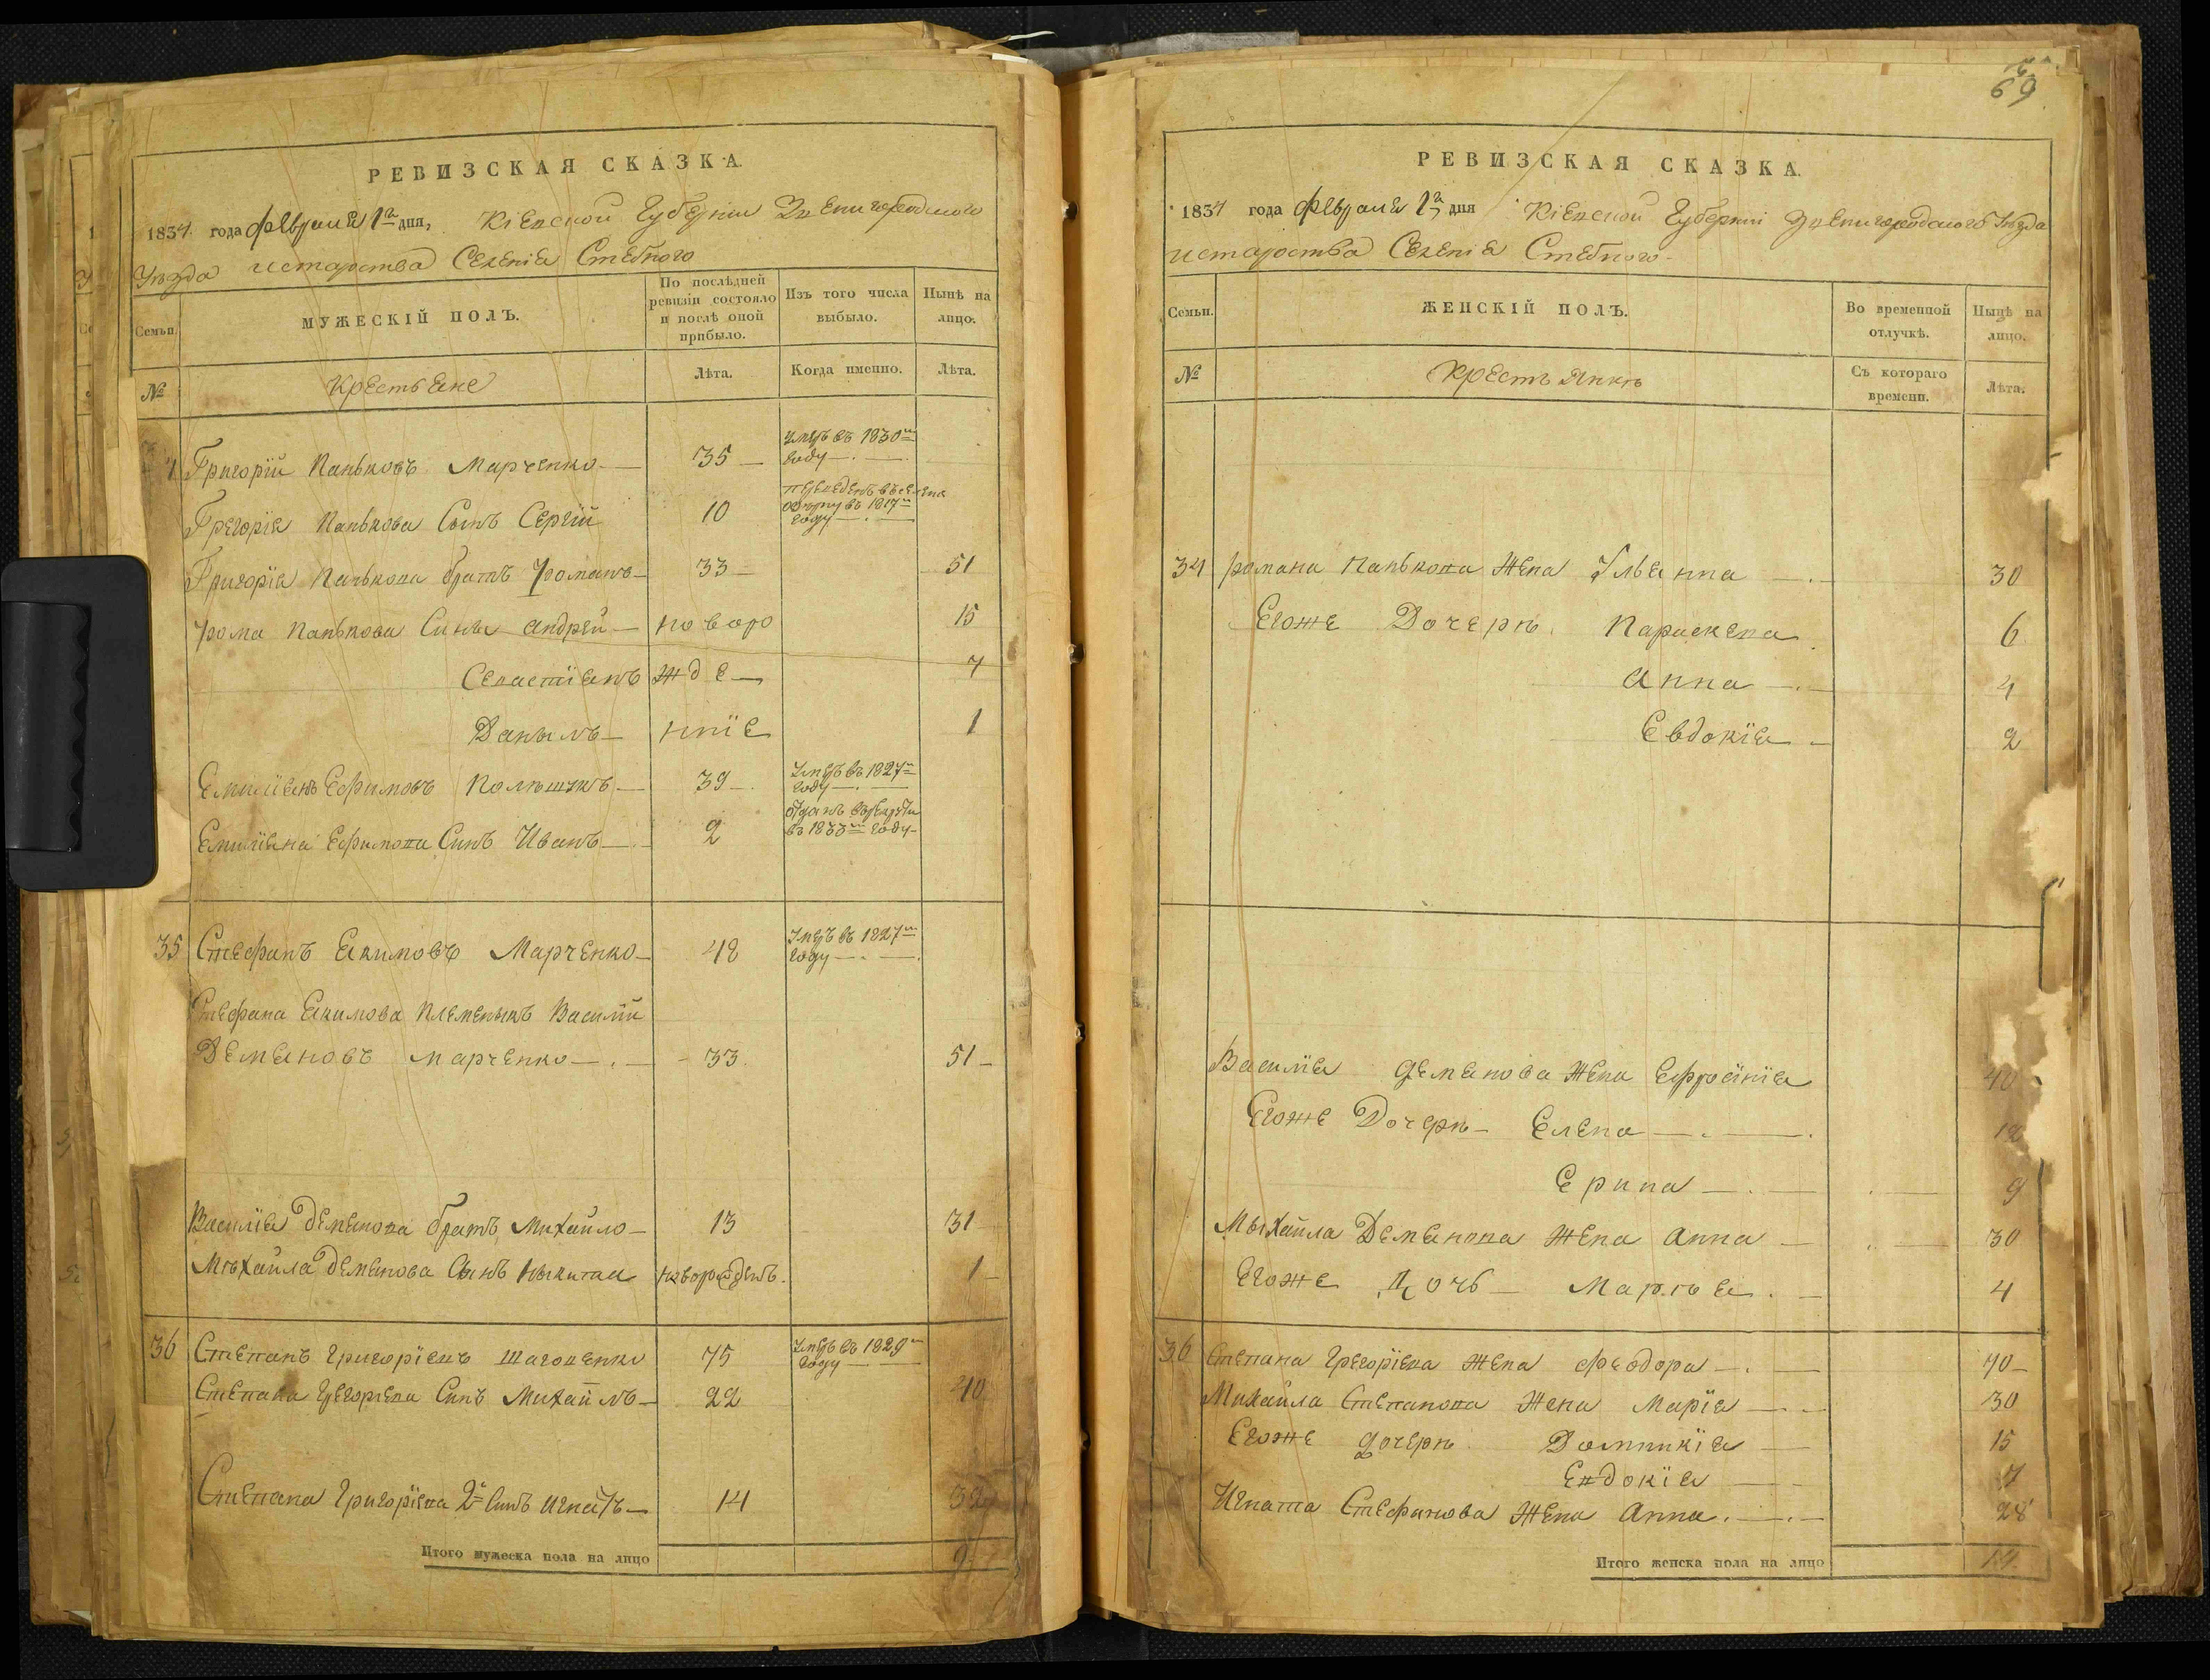 РЕВИЗСКАЯ СКАЗКА.
1834 года февраля 1го дня, Кіевской Губерніи Звенигородского
Уезда истароства Селенія Стебного
Семьи.
МУЖЕСКІЙ ПОЛЪ.
По послѣдней ревизіи состояло и послѣ оной прибыло.
Изъ того числа выбыло.
Нынѣ на лицо.
№
Крестьяне
Лѣта.
Когда именно.
Лѣта.
Григорій Паньковъ Марченко 35 умеръ въ 1830м году
Грегорія Панькова Сынъ Сергій 10 въ 1817м году
Григорія Панькова братъ Романъ 33 51
Рома Панькова Сины андрей новоро 15
Севастіянъ жде 7
Данылъ нніе 1
Емиліянъ Ефимовъ Полѣшукъ 39 Умеръ въ 1827м году
Емиліяна Ефимова Синъ Иванъ 2 отданъ въ 1833м году
35 Стефанъ Якимовъ Марченко 48 Умеръ въ 1827м году
Стефана Якимова племеныкъ Василій
Демяновъ марченко 33 51
Василія демянова братъ Михайло 13 31
Мыхайла демянова Сынъ Ныкита новорожденъ 1
36 Степанъ Григоріевъ 75 Умеръ въ 1829м году
Степана Грегориева Синъ Михайлъ 22 40
Степана Григоріева 2й Синъ Игнатъ 14 32
Итого мужеска пола на лицо 9
69
РЕВИЗСКАЯ СКАЗКА.
1834 года февраля 1го дня Кіевской Губерніи Звенигородского Уезда
истароства Селенія Стебного
Семьи.
ЖЕНСКІЙ ПОЛЪ.
Во временной отлучкѣ.
Нынѣ на лицо.
№
Крестьянкѣ
Съ котораго времени.
Лѣта.
34 Романа Панькова Жена Ульянна 30
Егоже Дочерѣ Параскева 6
Анна 4
Евдокія 2
Василія демянова Жена Ефросінія 40
Егоже Дочерѣ Елена 12
Ерина 9
Мыхайла Демянова Жена Анна 30
Егоже Дочь Марѳея 4
36 Степана Грегоріева Жена феодора 70
Михайла Степанова Жена Марія 30
Егоже дочерѣ Домникія 15
Евдокія 7
Игната Стефанова Жена Анна 28
Итого женска пола на лицо 14